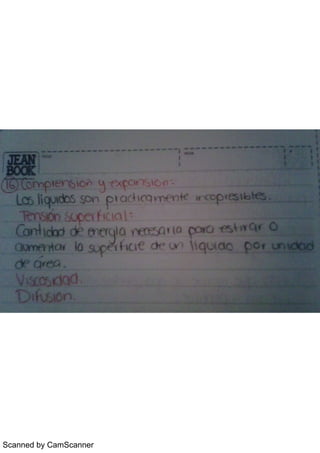 JEAN
BOOK
16 Comprension y expansion:
Los liquidos son practicamente incopresibles.
Tension superficial:
Cantidad de energia necesaria para estirar o
aumentar la superficie de un liquido por unidad
de area.
Viscosidad.
Difusion.
Scanned by CamScanner